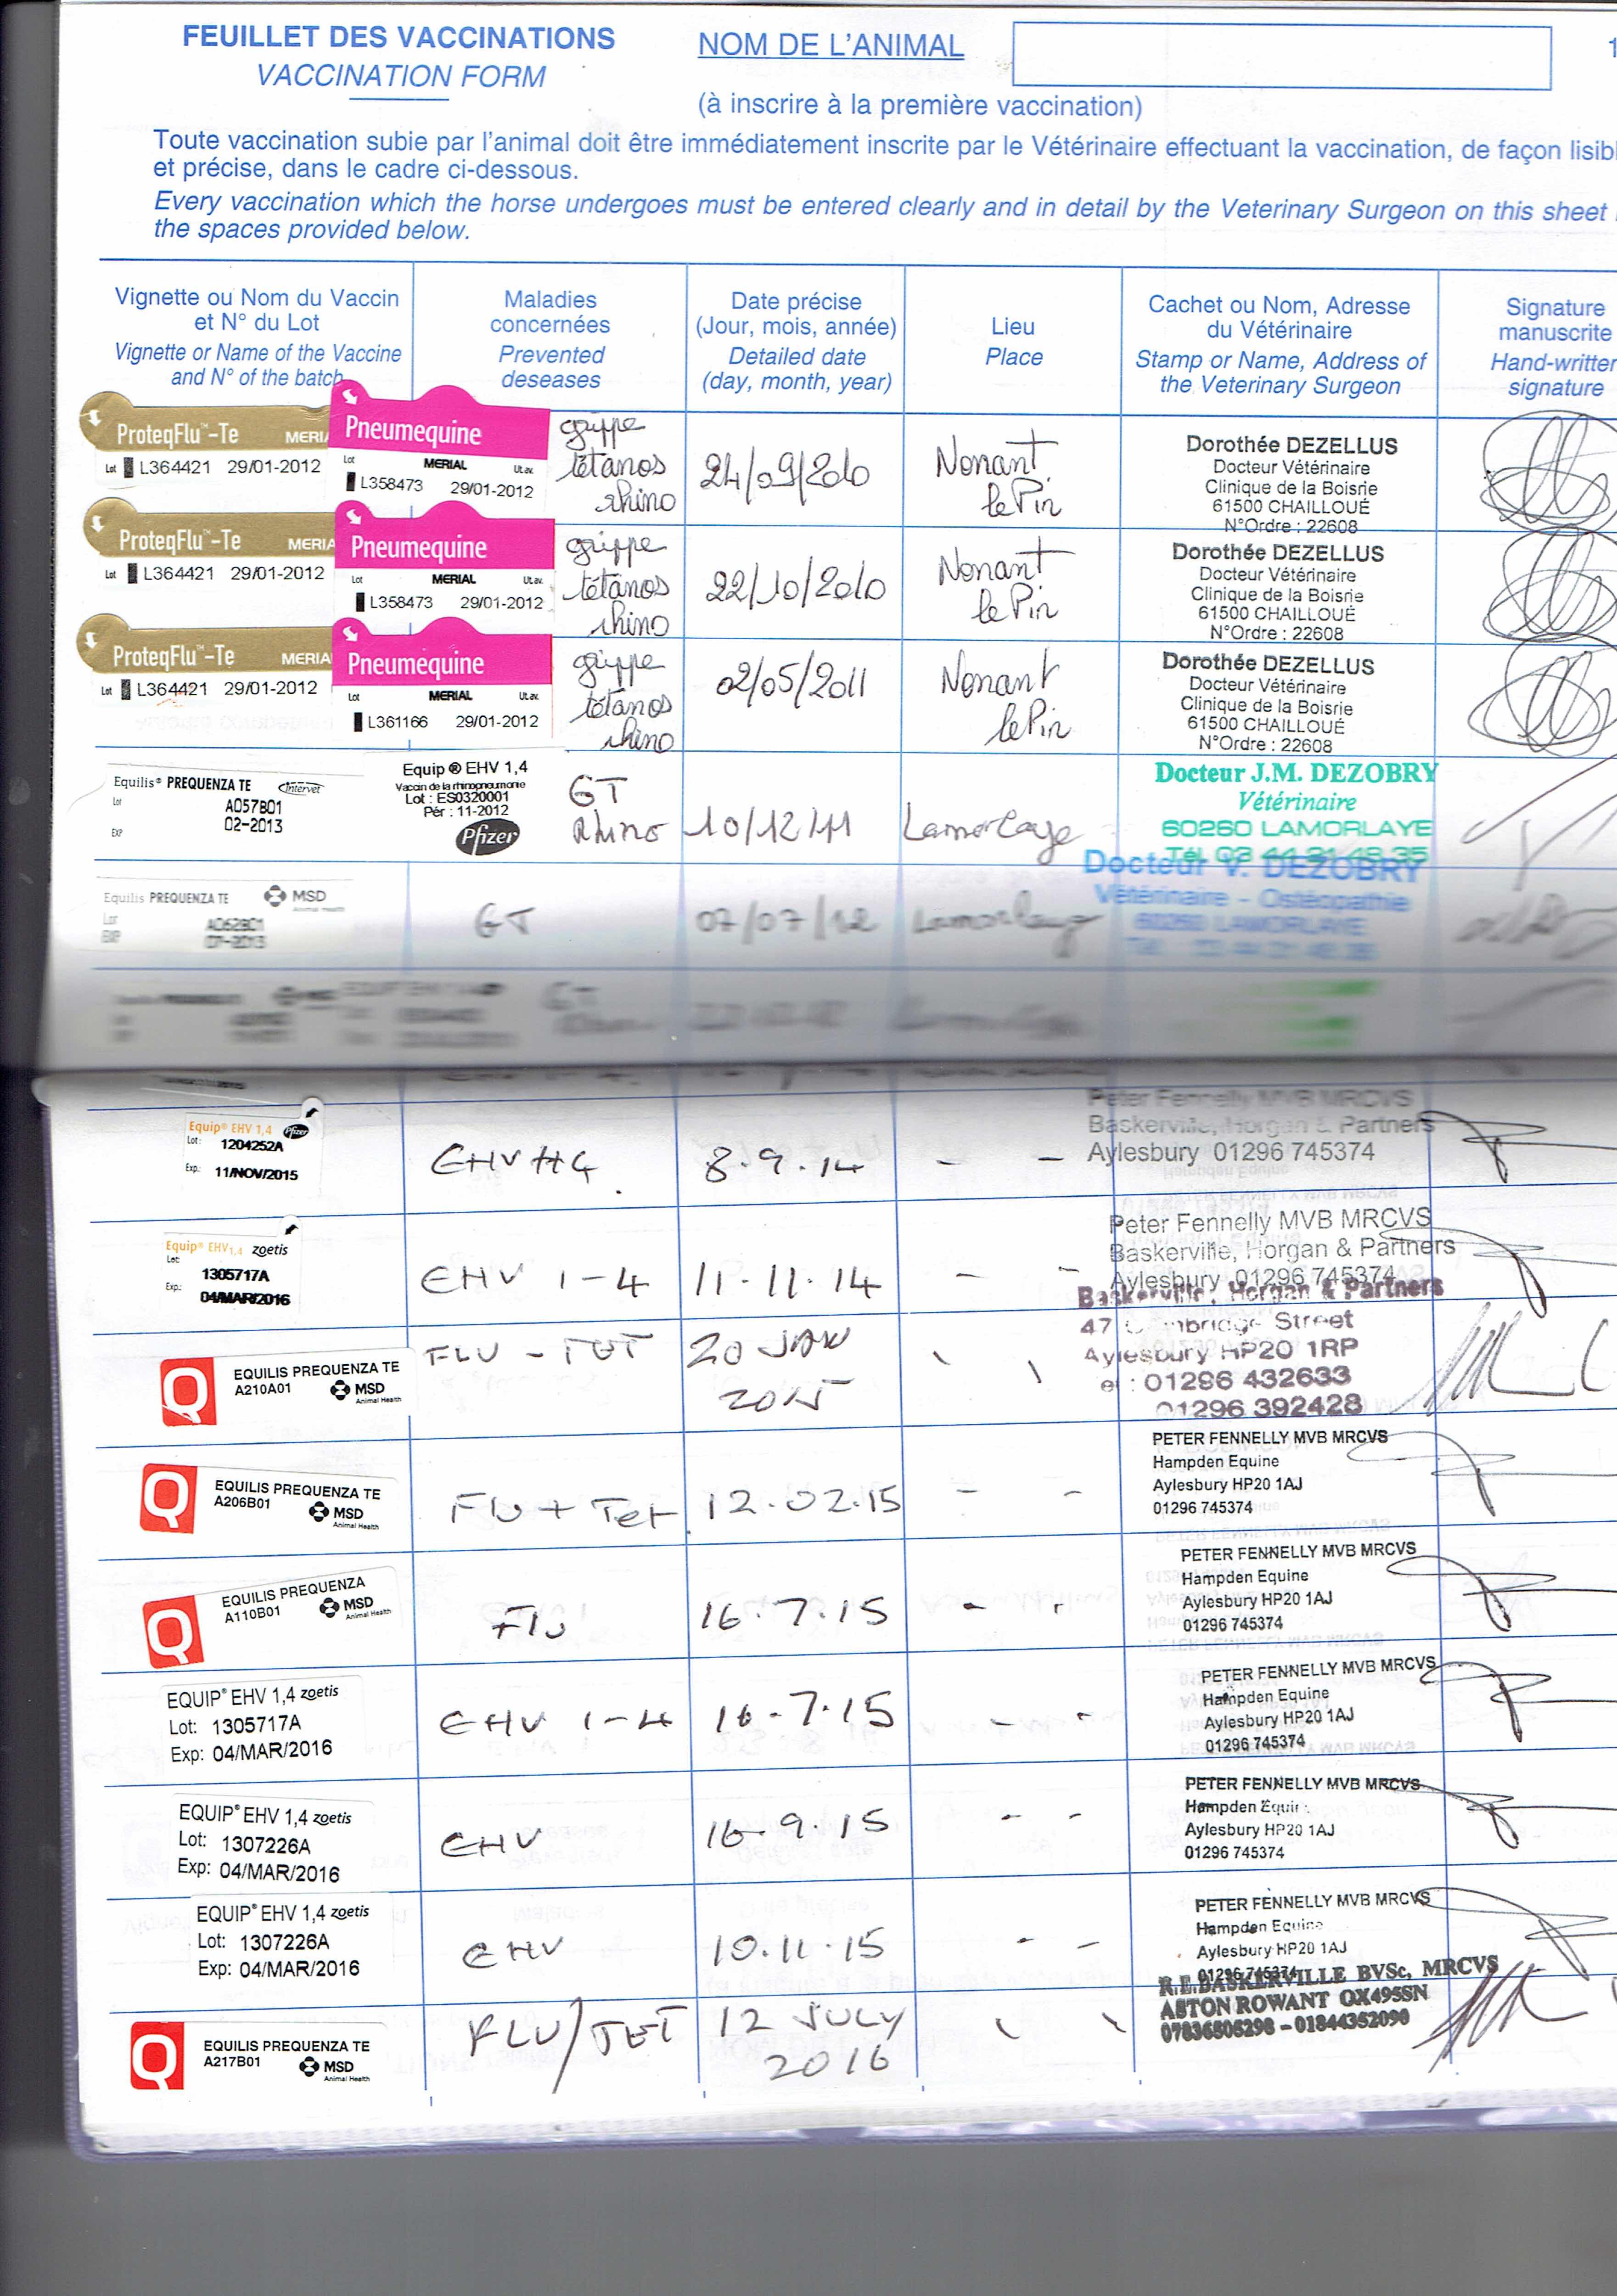 FEUILLET DES VACCINATIONS
VACCINATION FORM
NOM DE L'ANIMAL
1
(à inscrire à la première vaccination)
Toute vaccination subie par l'animal doit être immédiatement inscrite par le Vétérinaire effectuant la vaccination, de façon lisibl
et précise, dans le cadre ci-dessous.
Every vaccination which the horse undergoes must be entered clearly and in detail by the Veterinary Surgeon on this sheet
the spaces provided below.
Vignette ou Nom du Vaccin
et N° du Lot
Vignette or Name of the Vaccine
and N° of the batch
Maladies
concernées
Prevented
deseases
Date précise
(Jour, mois, année)
Detailed date
(day, month, year)
Lieu
Place
Cachet ou Nom, Adresse
du Vétérinaire
Stamp or Name, Address of
the Veterinary Surgeon
Signature
manuscrite
Hand-writter
signature
ProteqFlu™-Te MERIA
Lot L364421 29/01-2012
Pneumequine
Lot MERIAL Ut.av.
L358473 29/01-2012
grippe
tétanos
rhino
24/09/2010
Nonant
le Pin
Dorothée DEZELLUS
Docteur Vétérinaire
Clinique de la Boisrie
61500 CHAILLOUÉ
N°Ordre : 22608
ProteqFlu™-Te MERIA
Lot L364421 29/01-2012
Pneumequine
Lot MERIAL Ut.av.
L358473 29/01-2012
grippe
tétanos
rhino
22/10/2010
Nonant
le Pin
Dorothée DEZELLUS
Docteur Vétérinaire
Clinique de la Boisrie
61500 CHAILLOUÉ
N°Ordre : 22608
ProteqFlu™-Te MERIA
Lot L364421 29/01-2012
Pneumequine
Lot MERIAL Ut.av.
L361166 29/01-2012
grippe
tétanos
rhino
02/05/2011
Nonant
le Pin
Dorothée DEZELLUS
Docteur Vétérinaire
Clinique de la Boisrie
61500 CHAILLOUÉ
N°Ordre : 22608
Equilis® PREQUENZA TE Intervet
Lot A057B01
EXP 02-2013
Equip ® EHV 1,4
Vaccin de la rhinopneumonie
Lot : ES0320001
Pér : 11-2012
Pfizer
GT
Rhino
10/12/11
Lamorlaye
Docteur J.M. DEZOBRY
Vétérinaire
60260 LAMORLAYE
Tél 03 44 21 49 35
Equilis PREQUENZA TE MSD
Animal Health
Lot A062B01
EXP 07-2013
GT
07/07/12
Lamorlaye
Docteur V. DEZOBRY
Vétérinaire - Ostéopathie
60260 LAMORLAYE
EQUIP EHV 1,4
GT
Equip® EHV 1,4 Pfizer
Lot: 1204252A
Exp: 11/NOV/2015
EHV 1-4
8.9.14
- -
Peter Fennelly MVB MRCVS
Baskerville, Horgan & Partners
Aylesbury 01296 745374
Equip® EHV 1,4 zoetis
Lot: 1305717A
Exp: 04/MAR/2016
EHV 1-4
11.11.14
- -
Peter Fennelly MVB MRCVS
Baskerville, Horgan & Partners
Aylesbury 01296 745374
EQUILIS PREQUENZA TE
A210A01 MSD
Animal Health
FLU - TET
20 JAN
2015
Baskerville, Horgan & Partners
47 Street
Aylesbury HP20 1RP
01296 432633
01296 392428
EQUILIS PREQUENZA TE
A206B01 MSD
Animal Health
Flu + Tet
12.02.15
- -
PETER FENNELLY MVB MRCVS
Hampden Equine
Aylesbury HP20 1AJ
01296 745374
EQUILIS PREQUENZA
A110B01 MSD
Animal Health
Flu
16.7.15
- -
PETER FENNELLY MVB MRCVS
Hampden Equine
Aylesbury HP20 1AJ
01296 745374
EQUIP® EHV 1,4 zoetis
Lot: 1305717A
Exp: 04/MAR/2016
EHV 1-4
16.7.15
- -
PETER FENNELLY MVB MRCVS
Hampden Equine
Aylesbury HP20 1AJ
01296 745374
EQUIP® EHV 1,4 zoetis
Lot: 1307226A
Exp: 04/MAR/2016
EHV
16.9.15
- -
PETER FENNELLY MVB MRCVS
Hampden Equine
Aylesbury HP20 1AJ
01296 745374
EQUIP® EHV 1,4 zoetis
Lot: 1307226A
Exp: 04/MAR/2016
EHV
10.11.15
- -
PETER FENNELLY MVB MRCVS
Hampden Equine
Aylesbury HP20 1AJ
01296 745374
EQUILIS PREQUENZA TE
A217B01 MSD
Animal Health
FLU/TET
12 JULY
2016
R.E.BASKERVILLE BVSc, MRCVS
ASTON ROWANT OX495SN
07836505298 - 01844352090